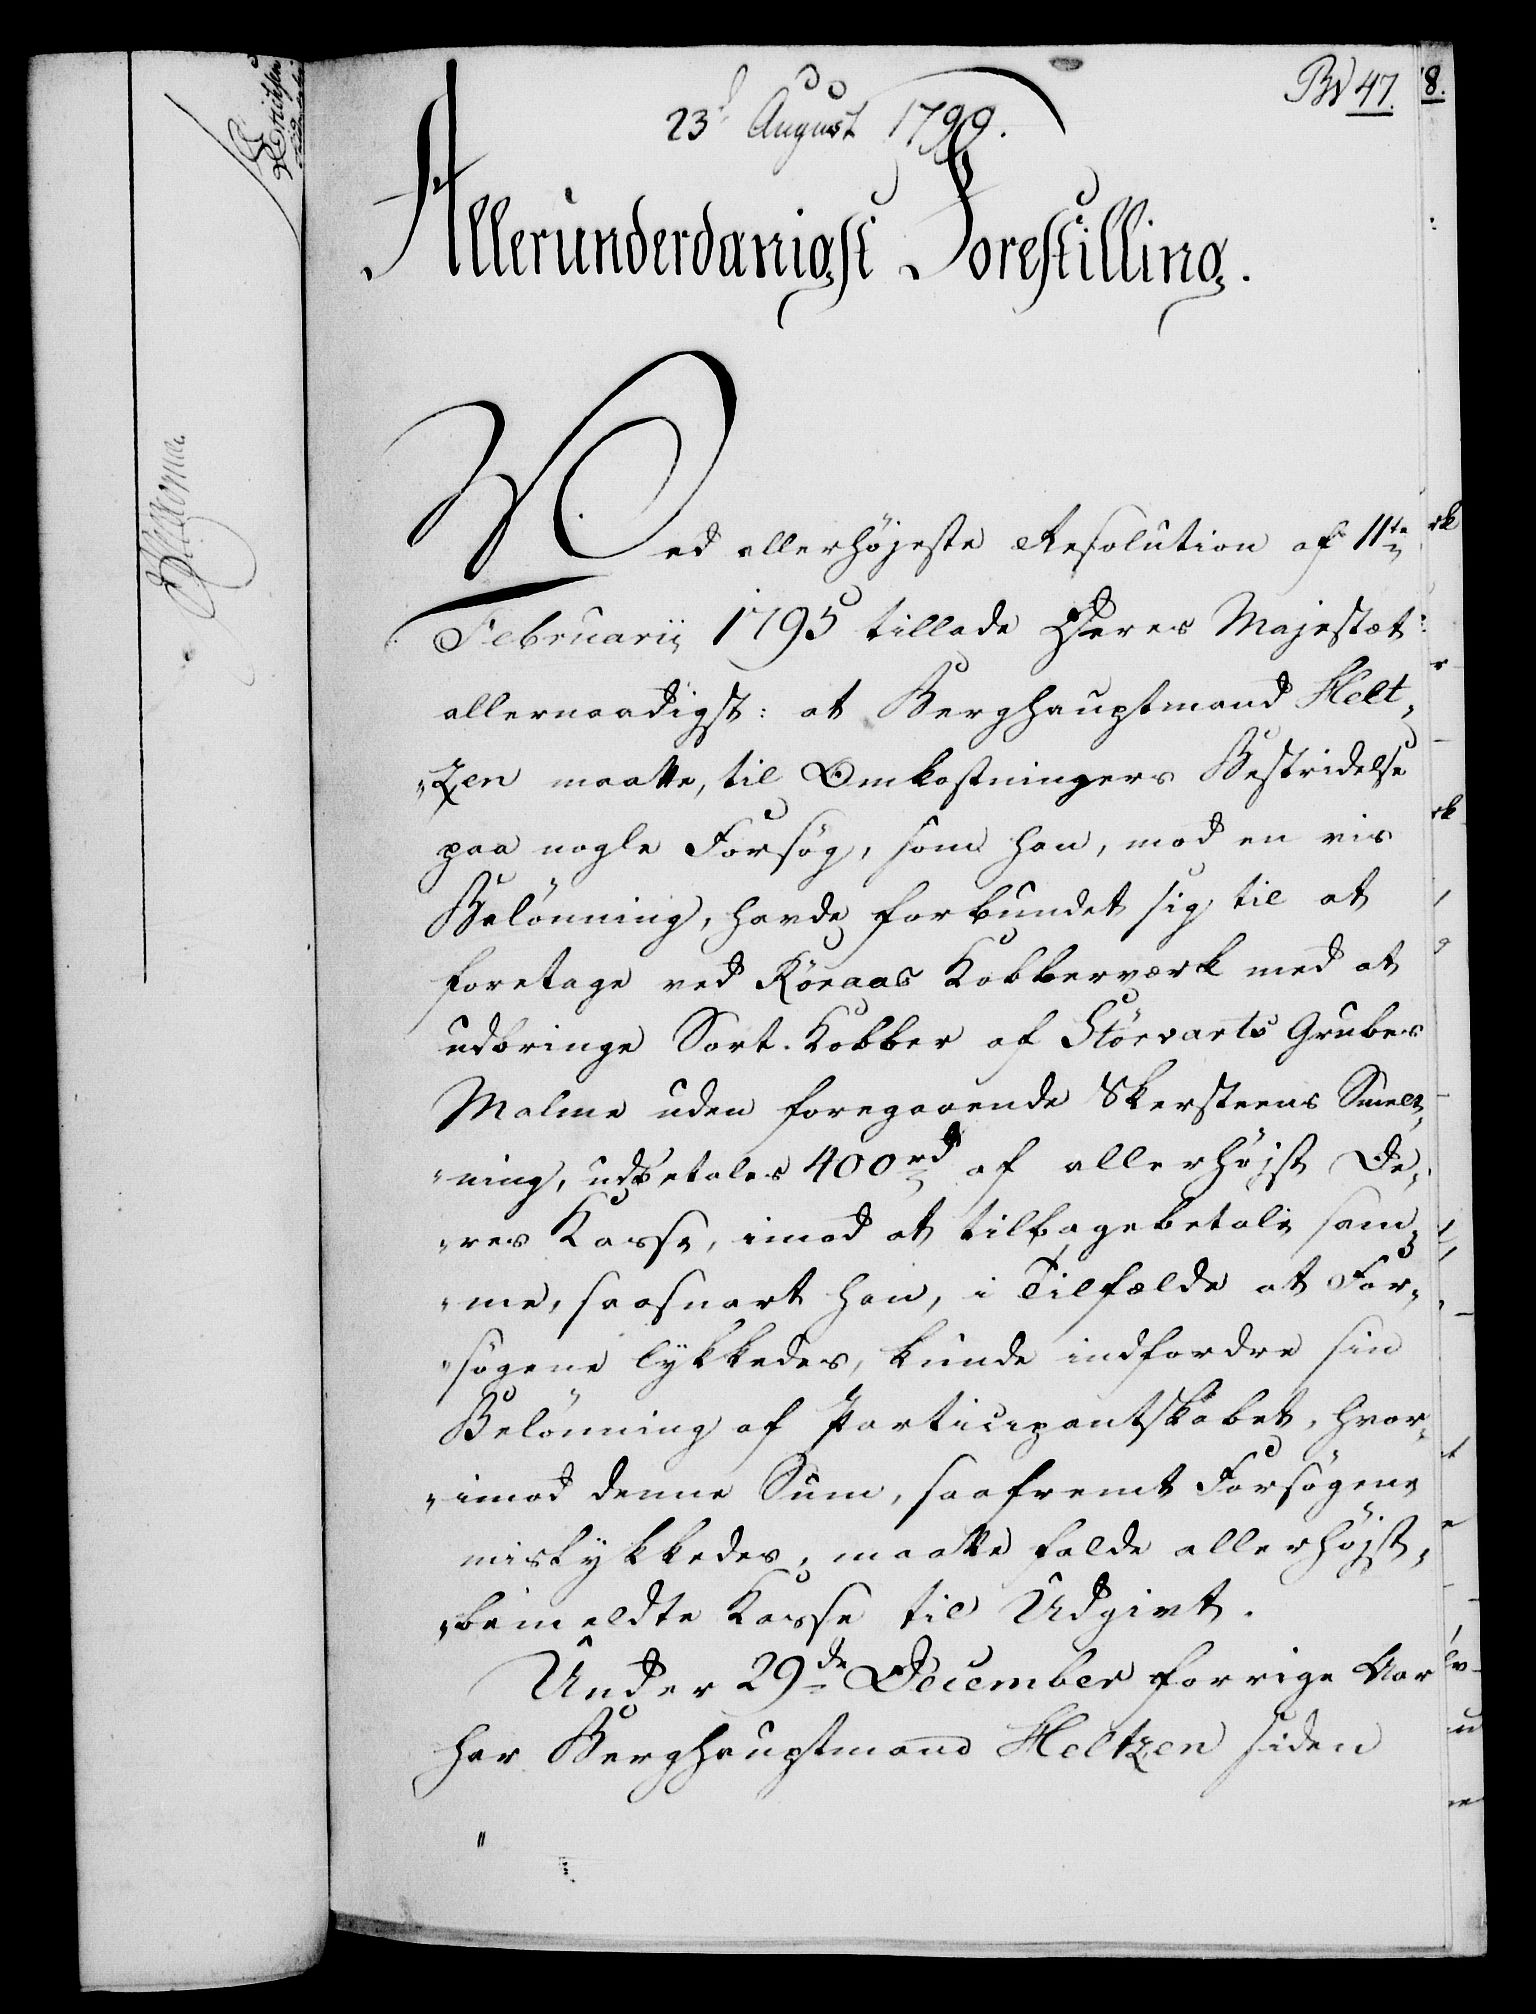 Bd 47. 8.
23d August 1799.
Allerunderdanigst Forestilling.
Ved allerhöjeste Resolution af 11te
Februarii 1795 tillade Deres Majestæt
allernaadigst: at Berghauptmand Helt,,
,,zen maatte, til Omkostningers Bestridelse
paa nogle Forsøg, som han, mod en vis
Belönning, havde forbundet sig til at
foretage ved Röraas Kobberværk med at
udbringe Sort-Kobber af Störvarts Grubes
Malme uden foregaaende Skersteens Smelt,,
,,ning, udbetales 400 rd af allerhöjst De,,
,,res Kasse, imod at tilbagebetale sam,,
,,me, saasnart han, i Tilfælde at For,,
,,sögene lykkedes, kunde indfordre sin
Belönning af Participantskabet, hvor,,
,,imod denne Sum, saafremt Forsögene
mislykkedes, maatte falde allerhöjst,,
,,bemeldte Kasse til Udgivt.
Under 29de December forrige Aar
har Berghauptmand Heltzen siden